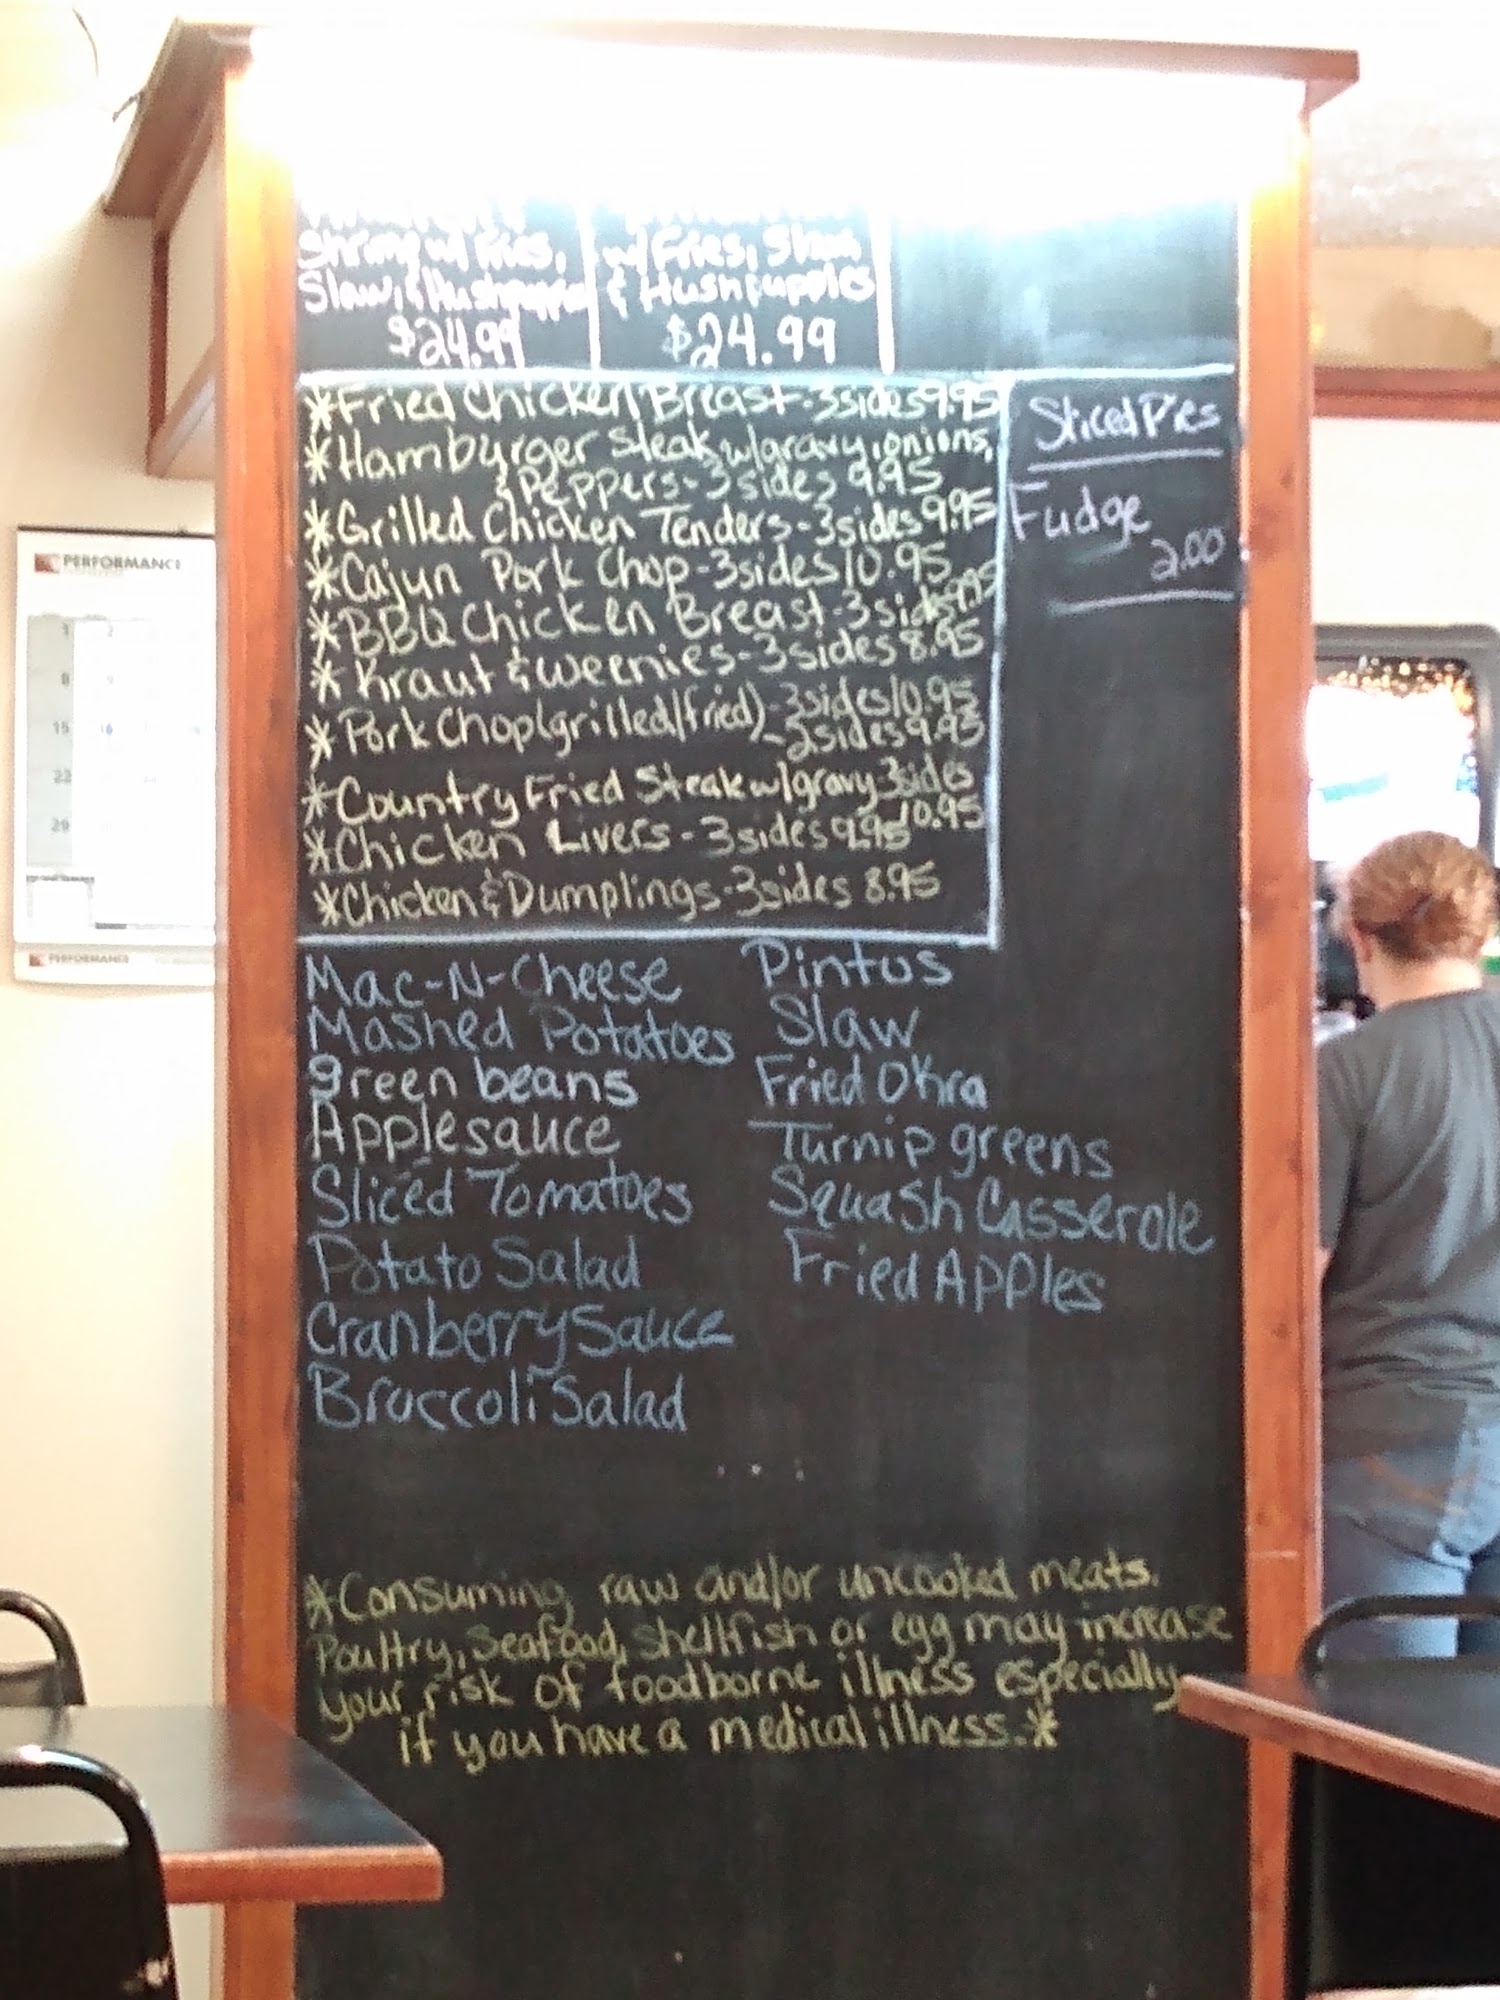 Shrimp w/ Fries,
Slaw, & Hushpuppies
$24.99
w/ Fries, Slaw
& Hushpuppies
$24.99
*Fried Chicken Breast-3sides 9.95
*Hamburger Steak w/gravy, onions,
& Peppers-3 sides 9.95
*Grilled Chicken Tenders-3sides 9.95
*Cajun Pork Chop-3sides 10.95
*BBQ Chicken Breast-3sides 9.95
*Kraut & Weenies-3sides 8.95
*Pork Chop(grilled/fried)-3sides 10.95
-2sides 9.95
*Country Fried Steak w/gravy 3sides
10.95
*Chicken Livers-3sides 9.95
*Chicken & Dumplings-3sides 8.95
Sliced Pies
Fudge
2.00
Mac-N-Cheese
Mashed Potatoes
green beans
Applesauce
Sliced Tomatoes
Potato Salad
Cranberry Sauce
Broccoli Salad
Pintos
Slaw
Fried Okra
Turnip greens
Squash Casserole
Fried Apples
*Consuming raw and/or uncooked meats.
Poultry, Seafood, shellfish or egg may increase
your risk of foodborne illness especially
if you have a medical illness.*
PERFORMANCE
1 2
8
15 16
22
29
PERFORMANCE